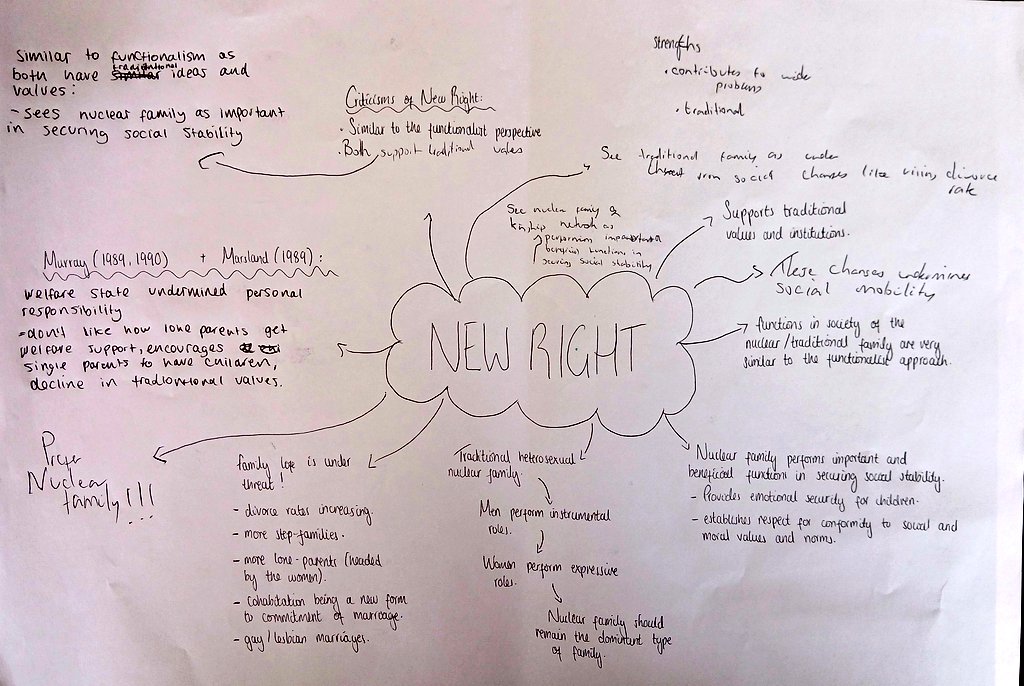 Similar to functionalism as
both have traditional ideas and
values:
- Sees nuclear family as important
in securing social stability
Criticisms of New Right:
• Similar to the functionalist perspective
• Both support traditional values
strengths
• contributes to wide
problems
• traditional
See traditional family as under
threat from social changes like rising divorce
rate
See nuclear family &
kinship network as
performing important &
beneficial functions in
securing social stability
Supports traditional
values and institutions.
These changes undermines
social mobility
functions in society of the
nuclear/traditional family are very
similar to the functionalist approach.
Murray (1989, 1990) + Marsland (1989):
Welfare state undermined personal
responsibility
- don't like how lone parents get
welfare support, encourages
single parents to have children,
decline in tradiontional values.
NEW RIGHT
Prefer
Nuclear
family!!!
family life is under
threat!
- divorce rates increasing.
- more step-families.
- more lone-parents (headed
by the women).
- cohabitation being a new form
to commitment of marriage.
- gay/lesbian marriages.
Traditional heterosexual
nuclear family.
Men perform instrumental
roles.
Women perform expressive
roles.
Nuclear family should
remain the dominant type
of family.
Nuclear family performs important and
beneficial functions in securing social stability.
- Provides emotional security for children.
- establishes respect for conformity to social and
moral values and norms.